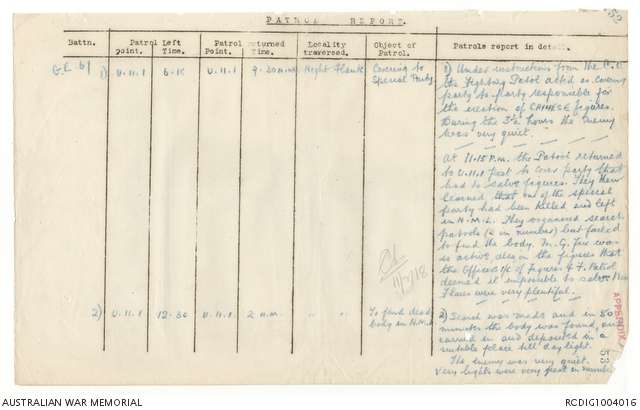 PATROL REPORT.
Battn.
Patrol Left
point. Time.
Patrol returned
Point. Time.
Locality
traversed.
Object of
Patrol.
Patrols report in detail.
1) U.11.1 U.11.1 Right Flank Covering to
Special Party
1) Under instructions from the
the Fighting Patrol acted as Covering
party to party responsible for
the erection of CHINESE figures.
During the 3½ hours the Enemy
was very quiet.
At 11.15 P.m. the Patrol returned
to U.11.1 post to cover party that
had to salve figures. They then
learned that one of the special
party had been killed and left
in N.M.L. They organised search
patrols (2 in number) but failed
to find the body. M.G. fire was
active, also on the figures that
the Officer i/c of Figures & F. Patrol
deemed it impossible to salve
Flares were very plentiful.
2) U.11.1 12-30 U.11.1 2 A.M. " " To find dead
body in N.M.L
2) Search was made and in 50
minutes the body was found, and
carried in and deposited in a
suitable place till daylight.
The enemy was very quiet.
Very lights were very great in number
53
AUSTRALIAN WAR MEMORIAL
RCDIG1004016